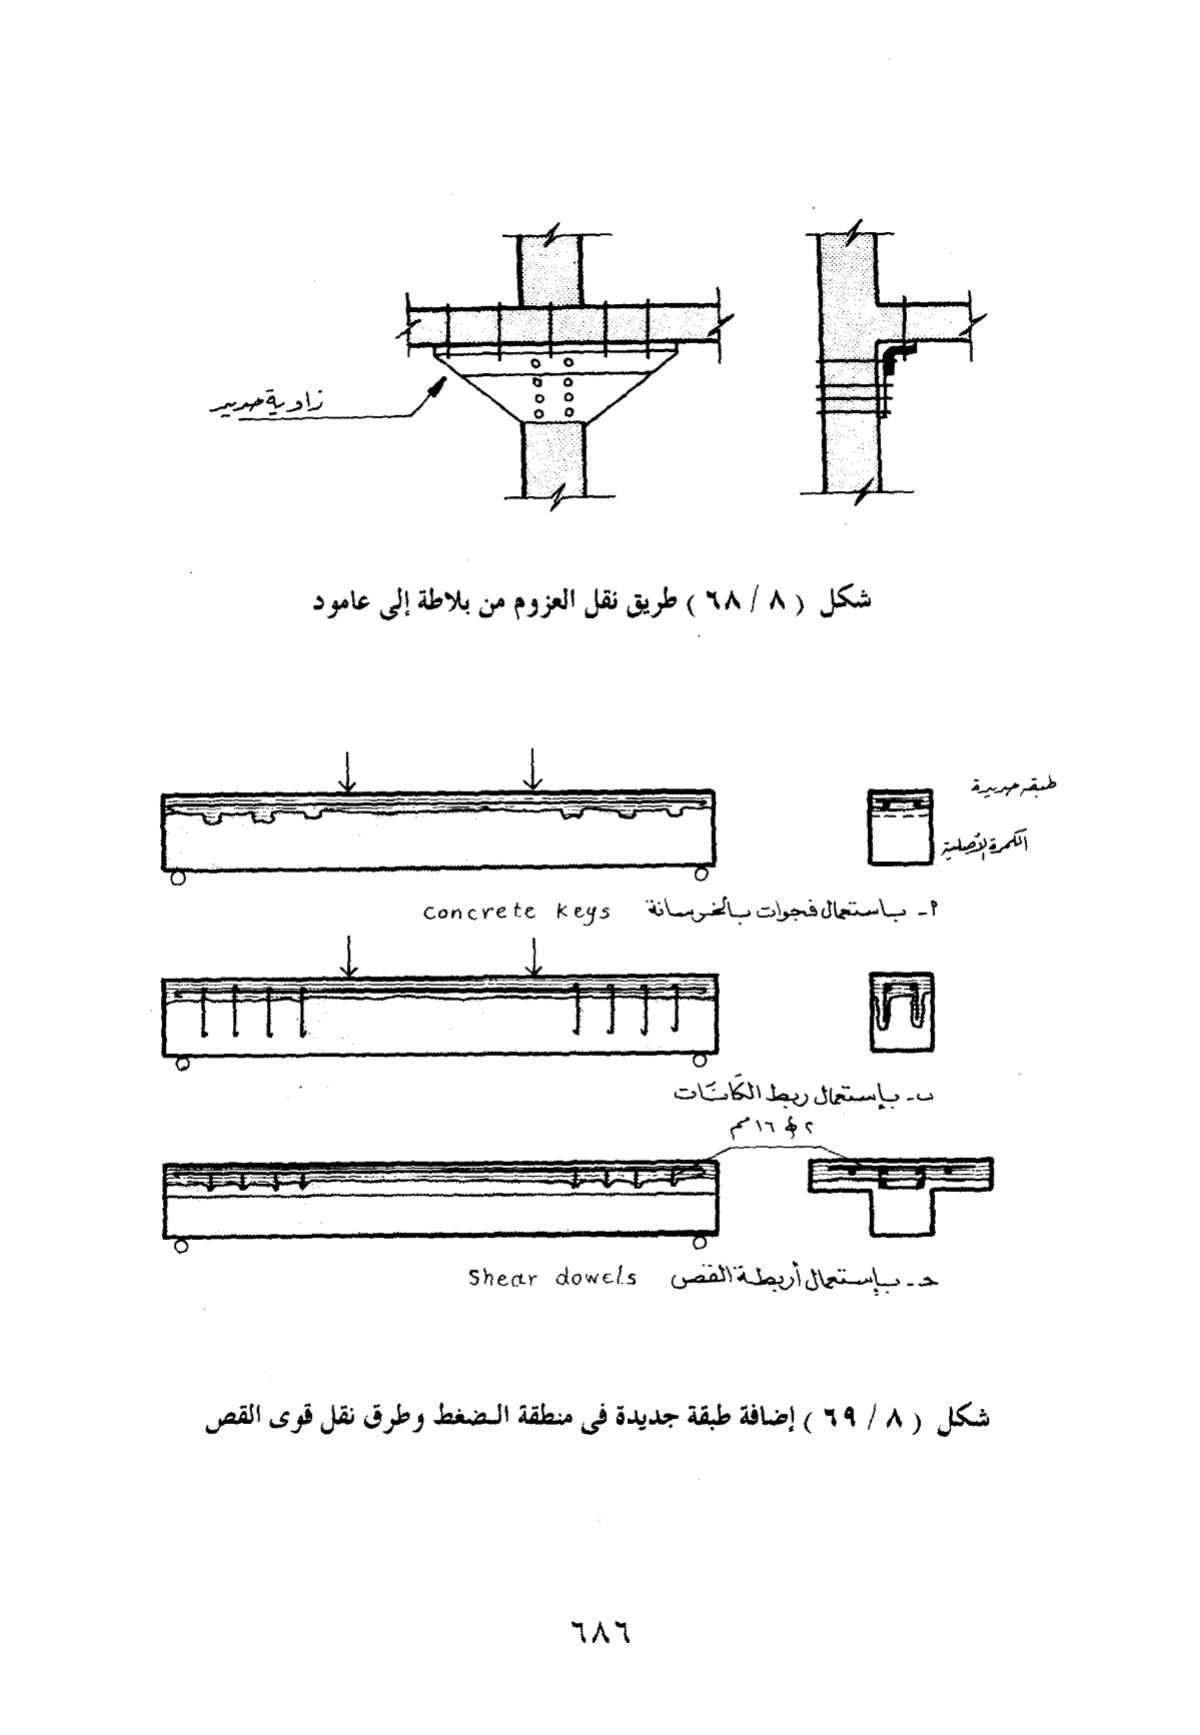 زاوية حديد
شكل ( ٨ / ٦٨ ) طريق نقل العزوم من بلاطة إلى عامود
طبقه جديدة
الكمرة الأصلية
أ - بإستعمال فجوات بالخرسانة concrete keys
ب - بإستعمال ربط الكانات
٢ ɸ ١٦ مم
حـ - بإستعمال أربطة القص Shear dowels
شكل ( ٨ / ٦٩ ) إضافة طبقة جديدة فى منطقة الـضغط وطرق نقل قوى القص
٦٨٦